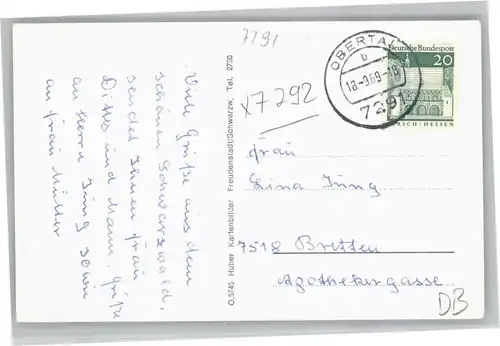 7291
Viele Grüße aus dem
schönen Schwarzwald,
sendet Ihnen Frau
und Mann. Grüße
an Herrn Jung sowie
an Frau Müller
O.5745 Huber Kartenbilder Freudenstadt/Schwarzw, Tel. 2730
x7292
OBERTAL
b
18-9.69-18
7291
Deutsche Bundespost
20
LORSCH/HESSEN
Frau
Lina Jung
7518 Bretten
Apothekergasse
DB